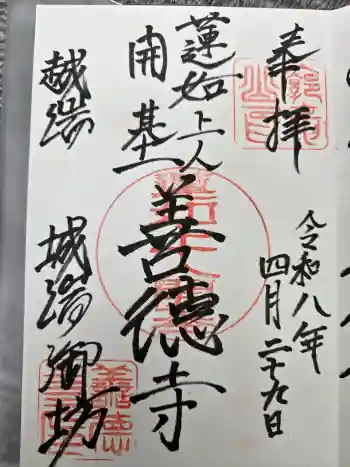 奉拝
令和八年
四月二十九日
蓮如上人
開基
善徳寺
越端
城端御坊